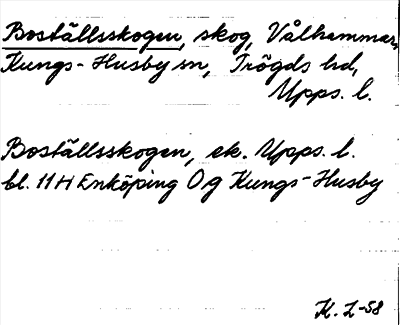 Boställsskogen, skog, Vålhammar,
Kungs-Husby sn, Trögds hd,
Upps. l.
Boställsskogen, ek. Upps. l.
bl. 11H Enköping 0g Kungs-Husby
K. Z-58